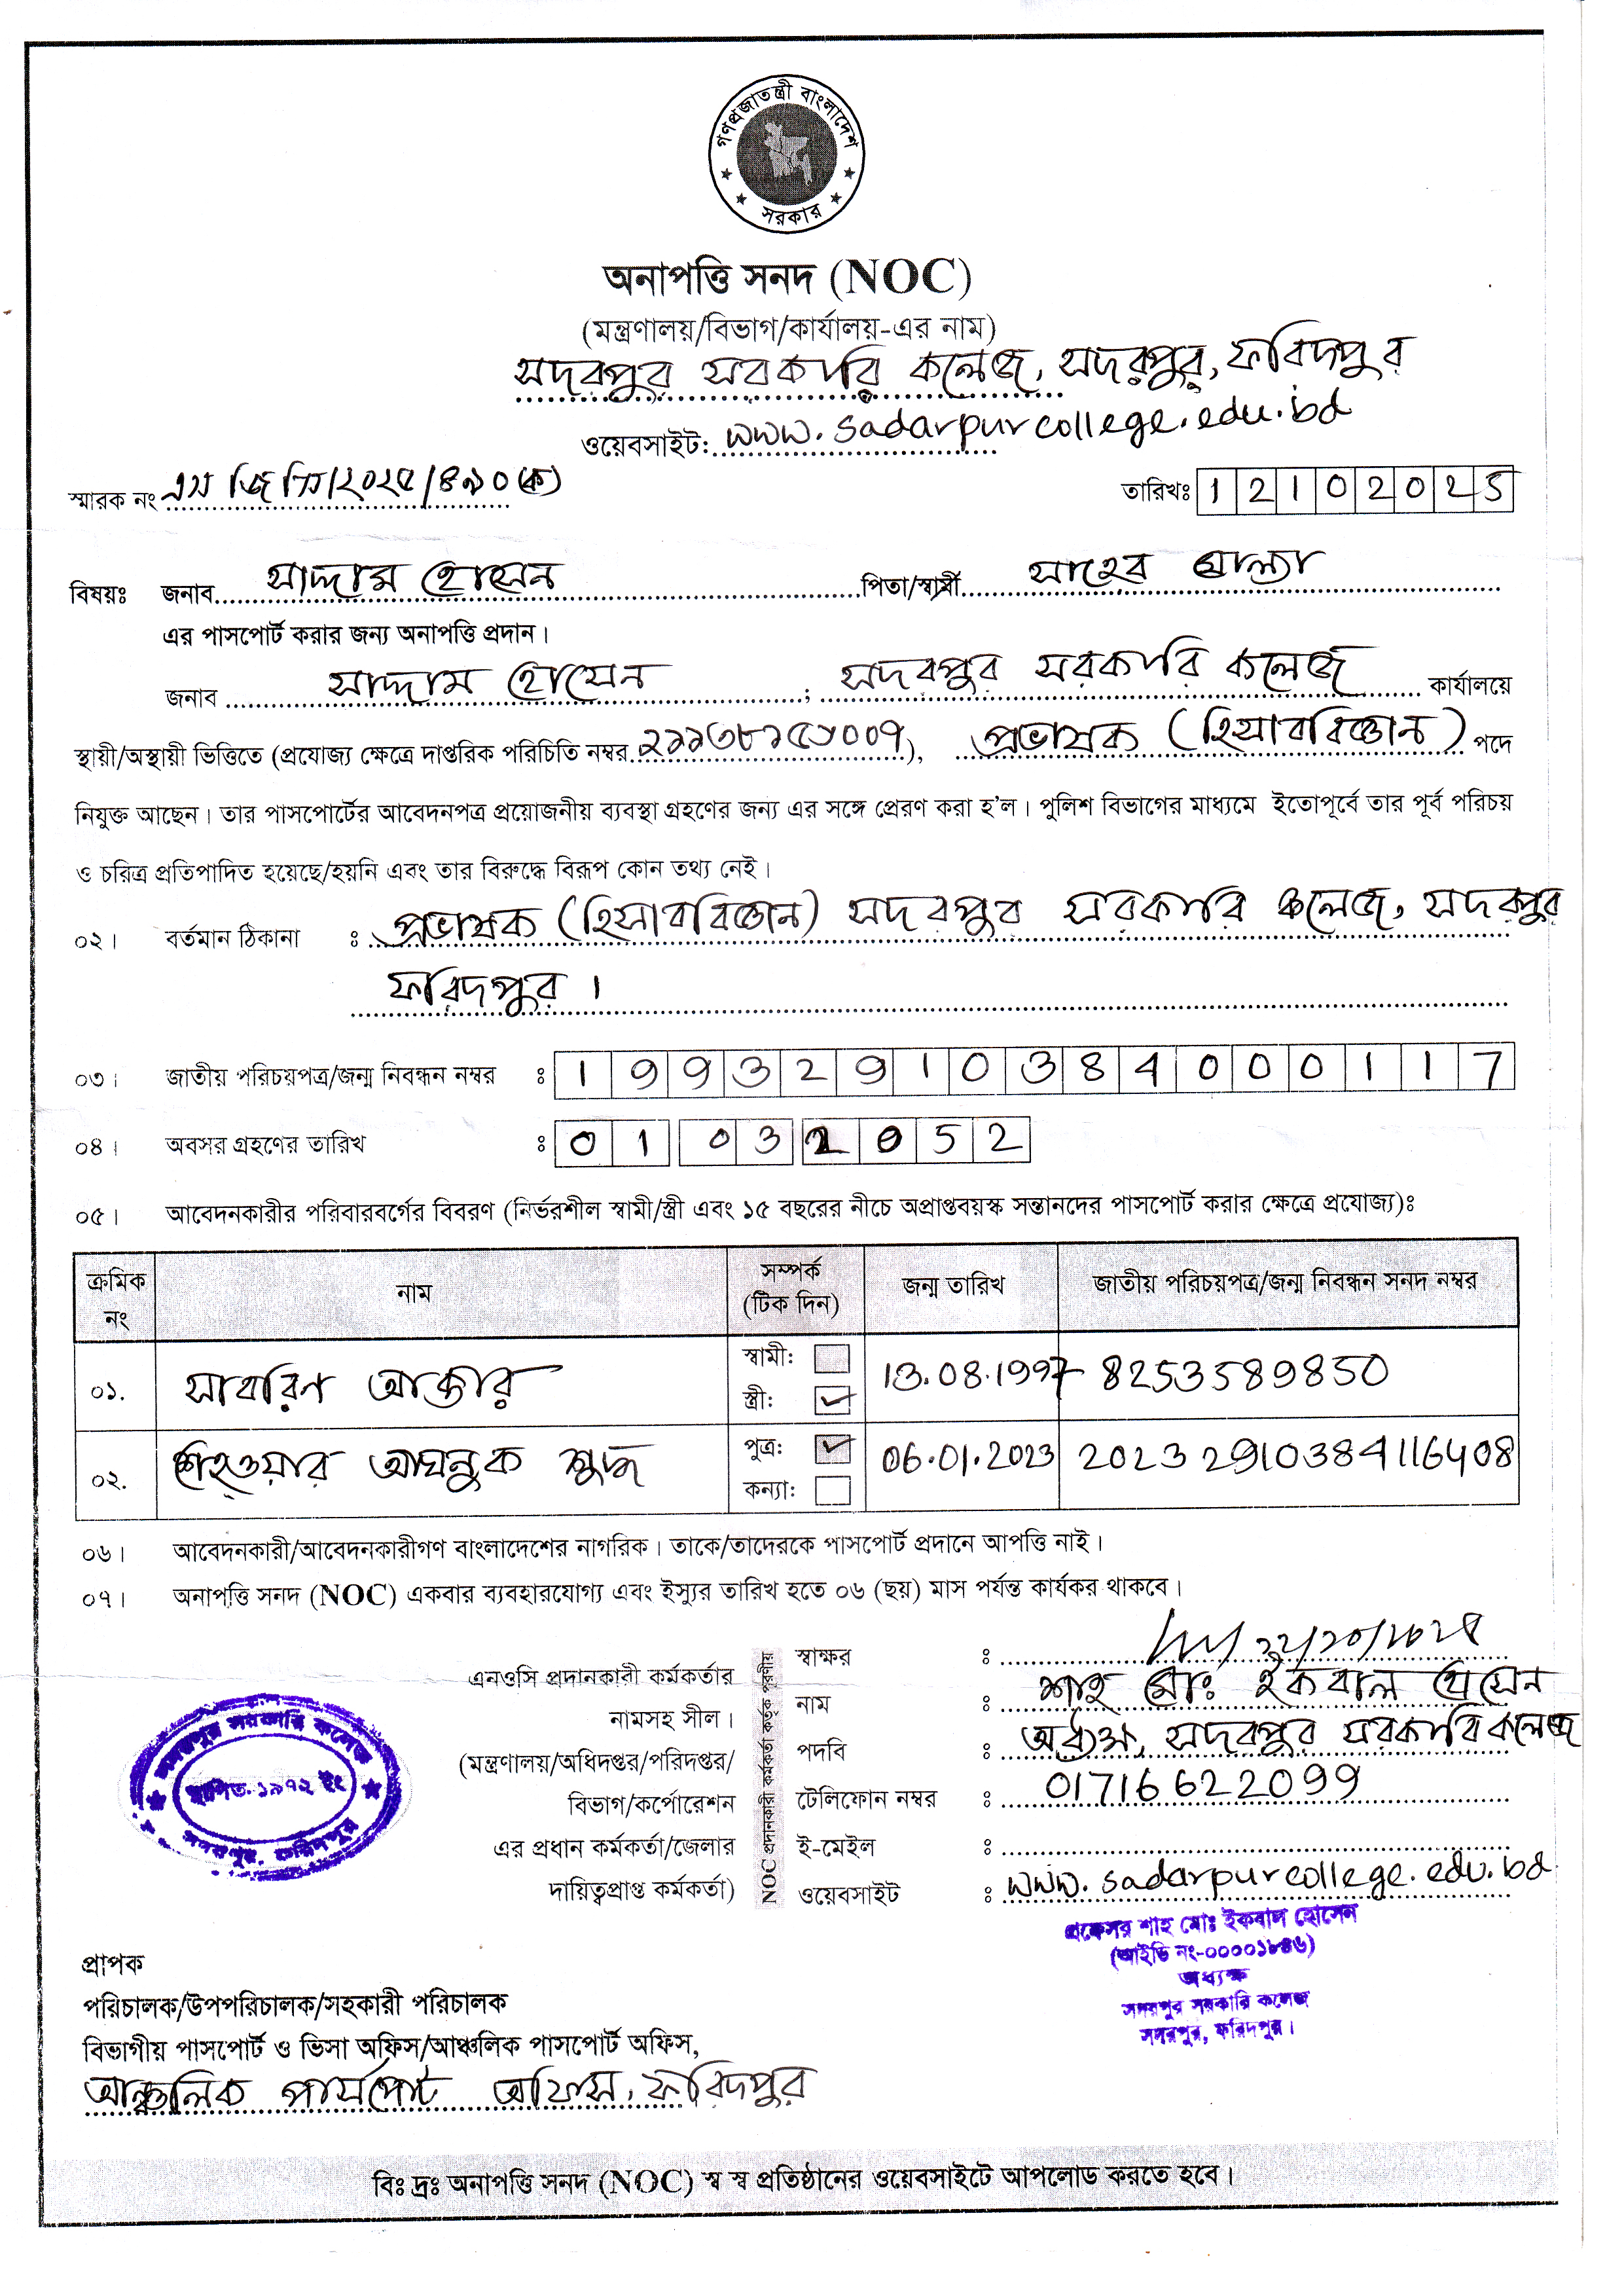 গণপ্রজাতন্ত্রী বাংলাদেশ
সরকার
অনাপত্তি সনদ (NOC)
(মন্ত্রণালয়/বিভাগ/কার্যালয়-এর নাম)
সদরপুর সরকারি কলেজ, সদরপুর, ফরিদপুর
ওয়েবসাইট: www.sadarpurcollege.edu.bd
স্মারক নং এস জি সি/২০২৫/৪৯০(ক)
তারিখঃ 12102025
বিষয়ঃ জনাব সাদ্দাম হোসেন পিতা/স্বামী সাহেব মোল্যা
এর পাসপোর্ট করার জন্য অনাপত্তি প্রদান।
জনাব সাদ্দাম হোসেন ; সদরপুর সরকারি কলেজ কার্যালয়ে
স্থায়ী/অস্থায়ী ভিত্তিতে (প্রযোজ্য ক্ষেত্রে দাপ্তরিক পরিচিতি নম্বর ), প্রভাষক (হিসাববিজ্ঞান) পদে
নিযুক্ত আছেন। তার পাসপোর্টের আবেদনপত্র প্রয়োজনীয় ব্যবস্থা গ্রহণের জন্য এর সঙ্গে প্রেরণ করা হ'ল। পুলিশ বিভাগের মাধ্যমে ইতোপূর্বে তার পূর্ব পরিচয়
ও চরিত্র প্রতিপাদিত হয়েছে/হয়নি এবং তার বিরুদ্ধে বিরূপ কোন তথ্য নেই।
০২। বর্তমান ঠিকানা ঃ প্রভাষক (হিসাববিজ্ঞান) সদরপুর সরকারি কলেজ, সদরপুর
ফরিদপুর।
০৩। জাতীয় পরিচয়পত্র/জন্ম নিবন্ধন নম্বর ঃ 19932910384000117
০৪। অবসর গ্রহণের তারিখ ঃ 01 03 2052
০৫। আবেদনকারীর পরিবারবর্গের বিবরণ (নির্ভরশীল স্বামী/স্ত্রী এবং ১৫ বছরের নীচে অপ্রাপ্তবয়স্ক সন্তানদের পাসপোর্ট করার ক্ষেত্রে প্রযোজ্য)ঃ
ক্রমিক নং নাম সম্পর্ক (টিক দিন) জন্ম তারিখ জাতীয় পরিচয়পত্র/জন্ম নিবন্ধন সনদ নম্বর
০১. সাবরিণ আক্তার স্বামী: স্ত্রী: ✓ 13.08.1997 8253589850
০২. আঘনুক শুদ্ধ পুত্র: ✓ কন্যা: 06.01.2023 20232910384116408
০৬। আবেদনকারী/আবেদনকারীগণ বাংলাদেশের নাগরিক। তাকে/তাদেরকে পাসপোর্ট প্রদানে আপত্তি নাই।
০৭। অনাপত্তি সনদ (NOC) একবার ব্যবহারযোগ্য এবং ইস্যুর তারিখ হতে ০৬ (ছয়) মাস পর্যন্ত কার্যকর থাকবে।
এনওসি প্রদানকারী কর্মকর্তার
নামসহ সীল।
(মন্ত্রণালয়/অধিদপ্তর/পরিদপ্তর/
বিভাগ/কর্পোরেশন
এর প্রধান কর্মকর্তা/জেলার
দায়িত্বপ্রাপ্ত কর্মকর্তা)
NOC প্রদানকারী কর্মকর্তা কর্তৃক পূরণীয়
স্বাক্ষর ঃ
নাম ঃ শাহ মোঃ ইকবাল হোসেন
পদবি ঃ অধ্যক্ষ, সদরপুর সরকারি কলেজ
টেলিফোন নম্বর ঃ 01716622099
ই-মেইল ঃ
ওয়েবসাইট ঃ www.sadarpurcollege.edu.bd
সদরপুর সরকারি কলেজ
স্থাপিত-১৯৭২ ইং
সদরপুর, ফরিদপুর
প্রফেসর শাহ মোঃ ইকবাল হোসেন
(আইডি নং-০০০০১৮৪৬)
অধ্যক্ষ
সদরপুর সরকারি কলেজ
সদরপুর, ফরিদপুর।
প্রাপক
পরিচালক/উপপরিচালক/সহকারী পরিচালক
বিভাগীয় পাসপোর্ট ও ভিসা অফিস/আঞ্চলিক পাসপোর্ট অফিস,
আঞ্চলিক পার্সপোর্ট অফিস, ফরিদপুর
বিঃ দ্রঃ অনাপত্তি সনদ (NOC) স্ব স্ব প্রতিষ্ঠানের ওয়েবসাইটে আপলোড করতে হবে।